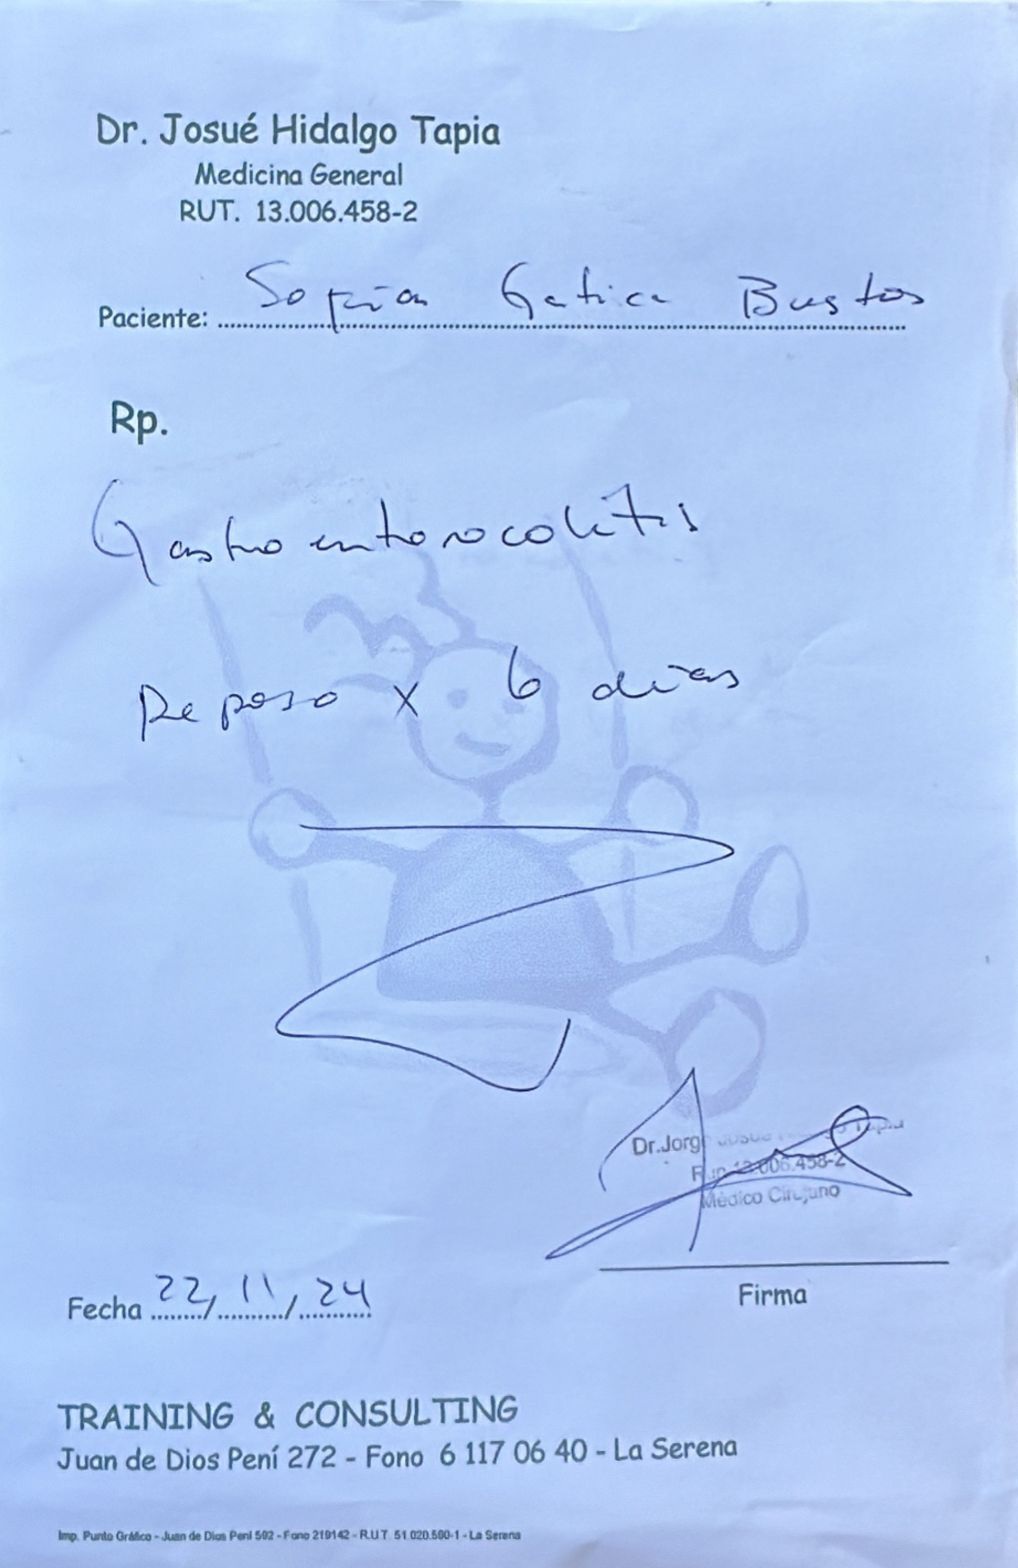 Dr. Josué Hidalgo Tapia
Medicina General
RUT. 13.006.458-2
Paciente: Sofía Gatica Bustos
Rp.
Gastroenterocolitis
Reposo x 6 días
Dr. Jorge Josue Tapia
Run 13.006.458-2
Médico Cirujano
Firma
Fecha 22/11/24
TRAINING & CONSULTING
Juan de Dios Pení 272 - Fono 6 117 06 40 - La Serena
Imp. Punto Gráfico - Juan de Dios Pení 592 - Fono 219142 - R.U.T. 51.020.590-1 - La Serena